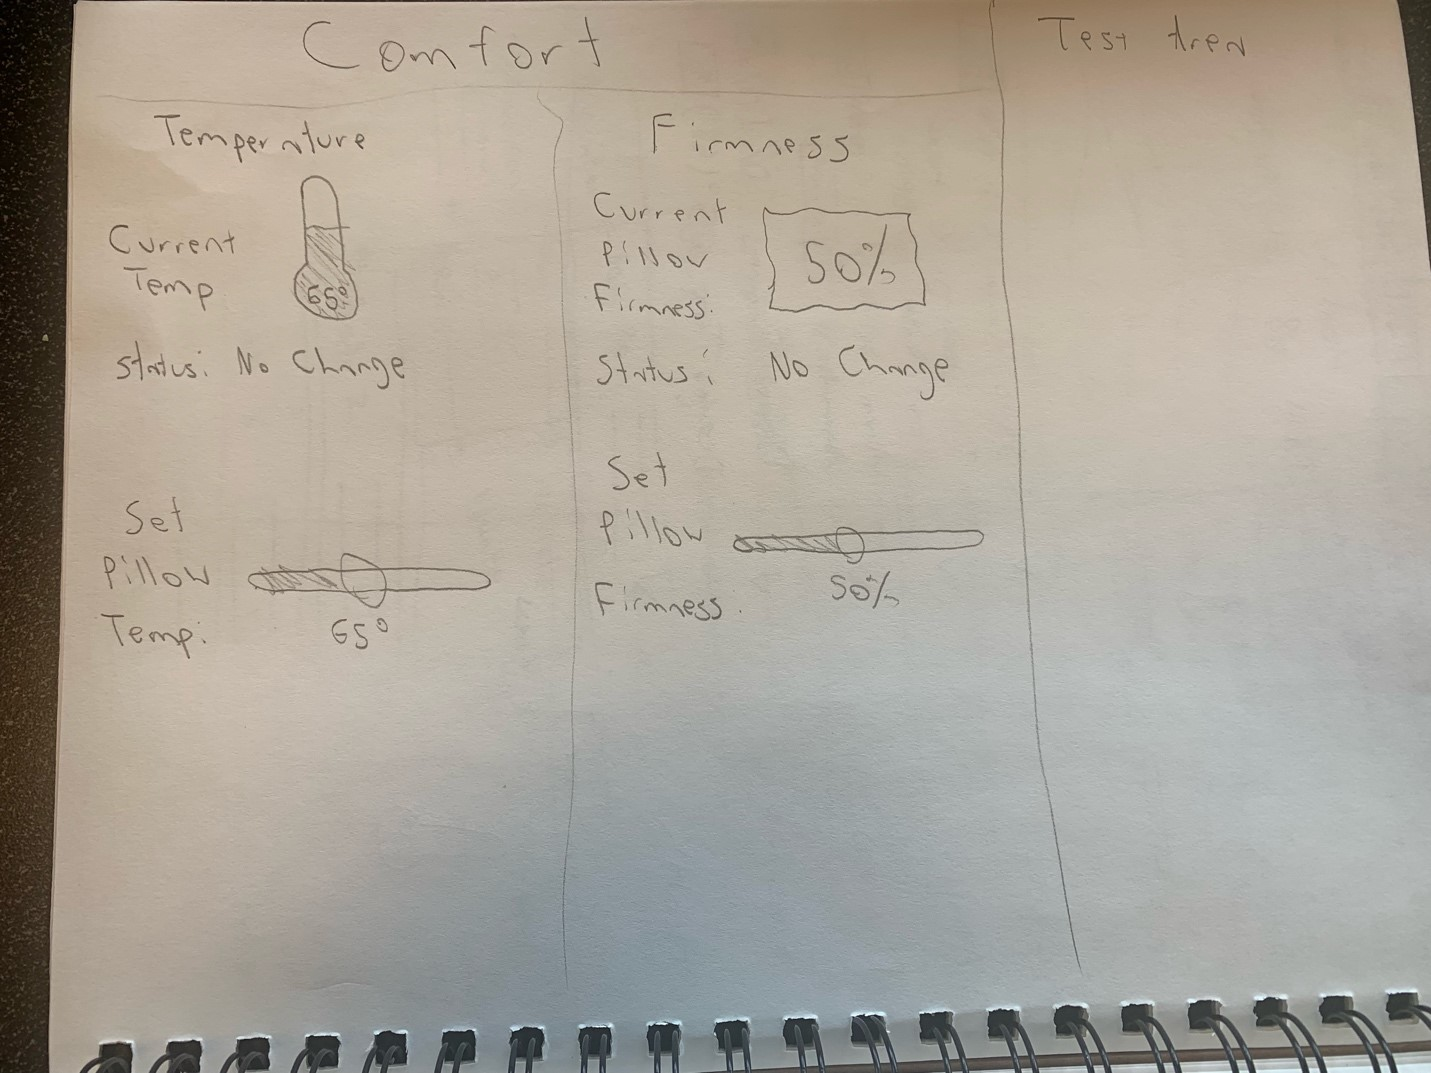 Comfort
Test Area
Temperature
Current
Temp
65°
Status: No Change
Set
Pillow
Temp:
65°
Firmness
Current
Pillow
Firmness:
50%
Status: No Change
Set
Pillow
Firmness:
50%